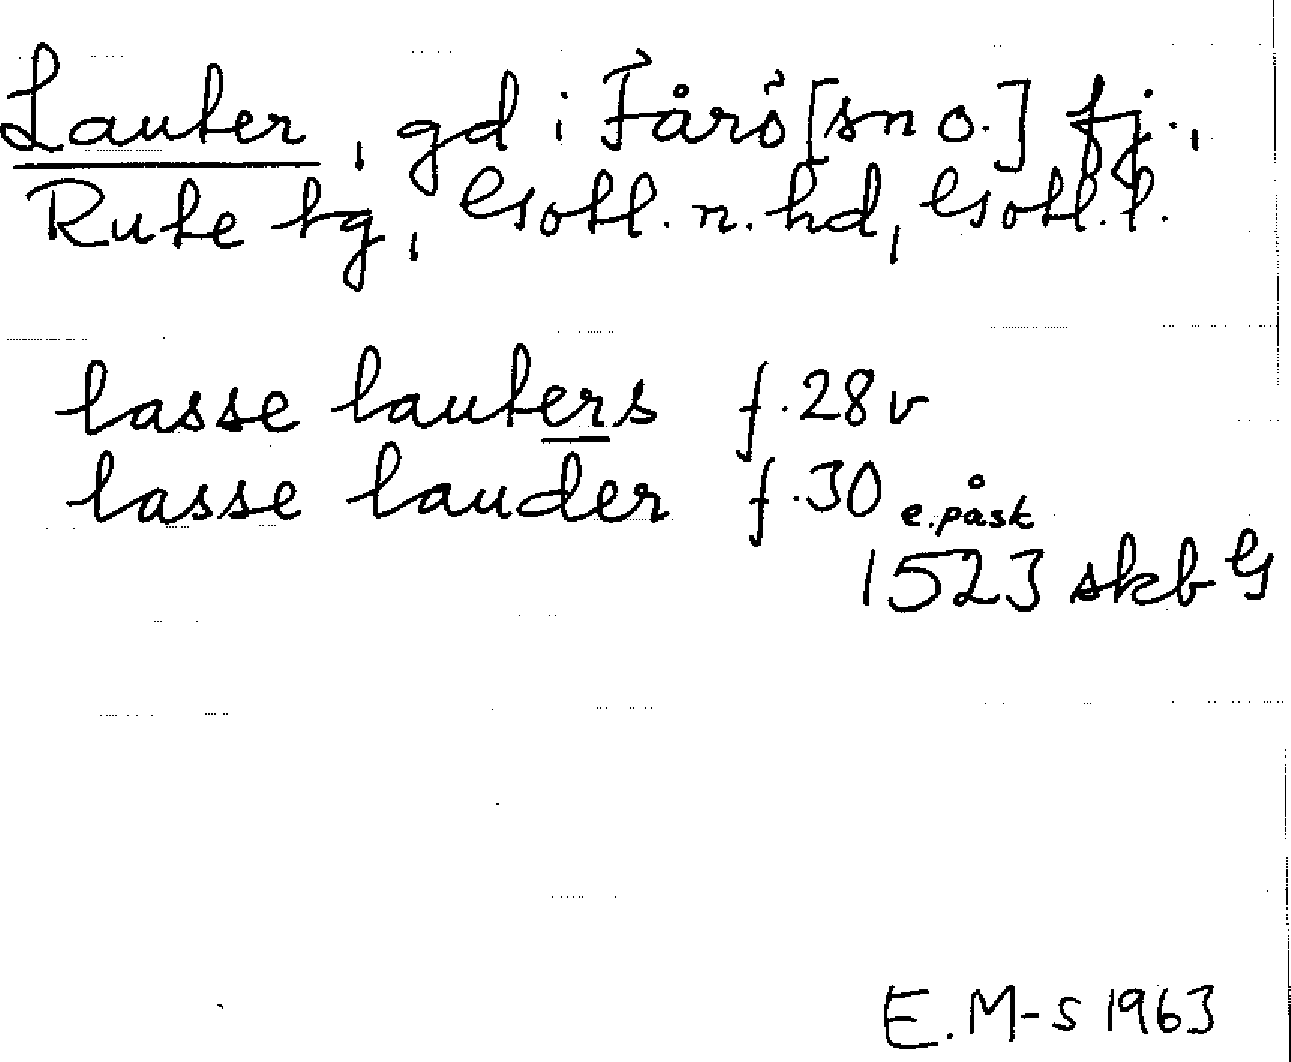 Lauter, gd i Fårö [sn o.] tj.,
Rute tg, Gotl. n. hd, Gotl. l.
lasse lauters f. 28 v
lasse lauder f. 30 e. påsk
1523 skb G
E. M-s 1963